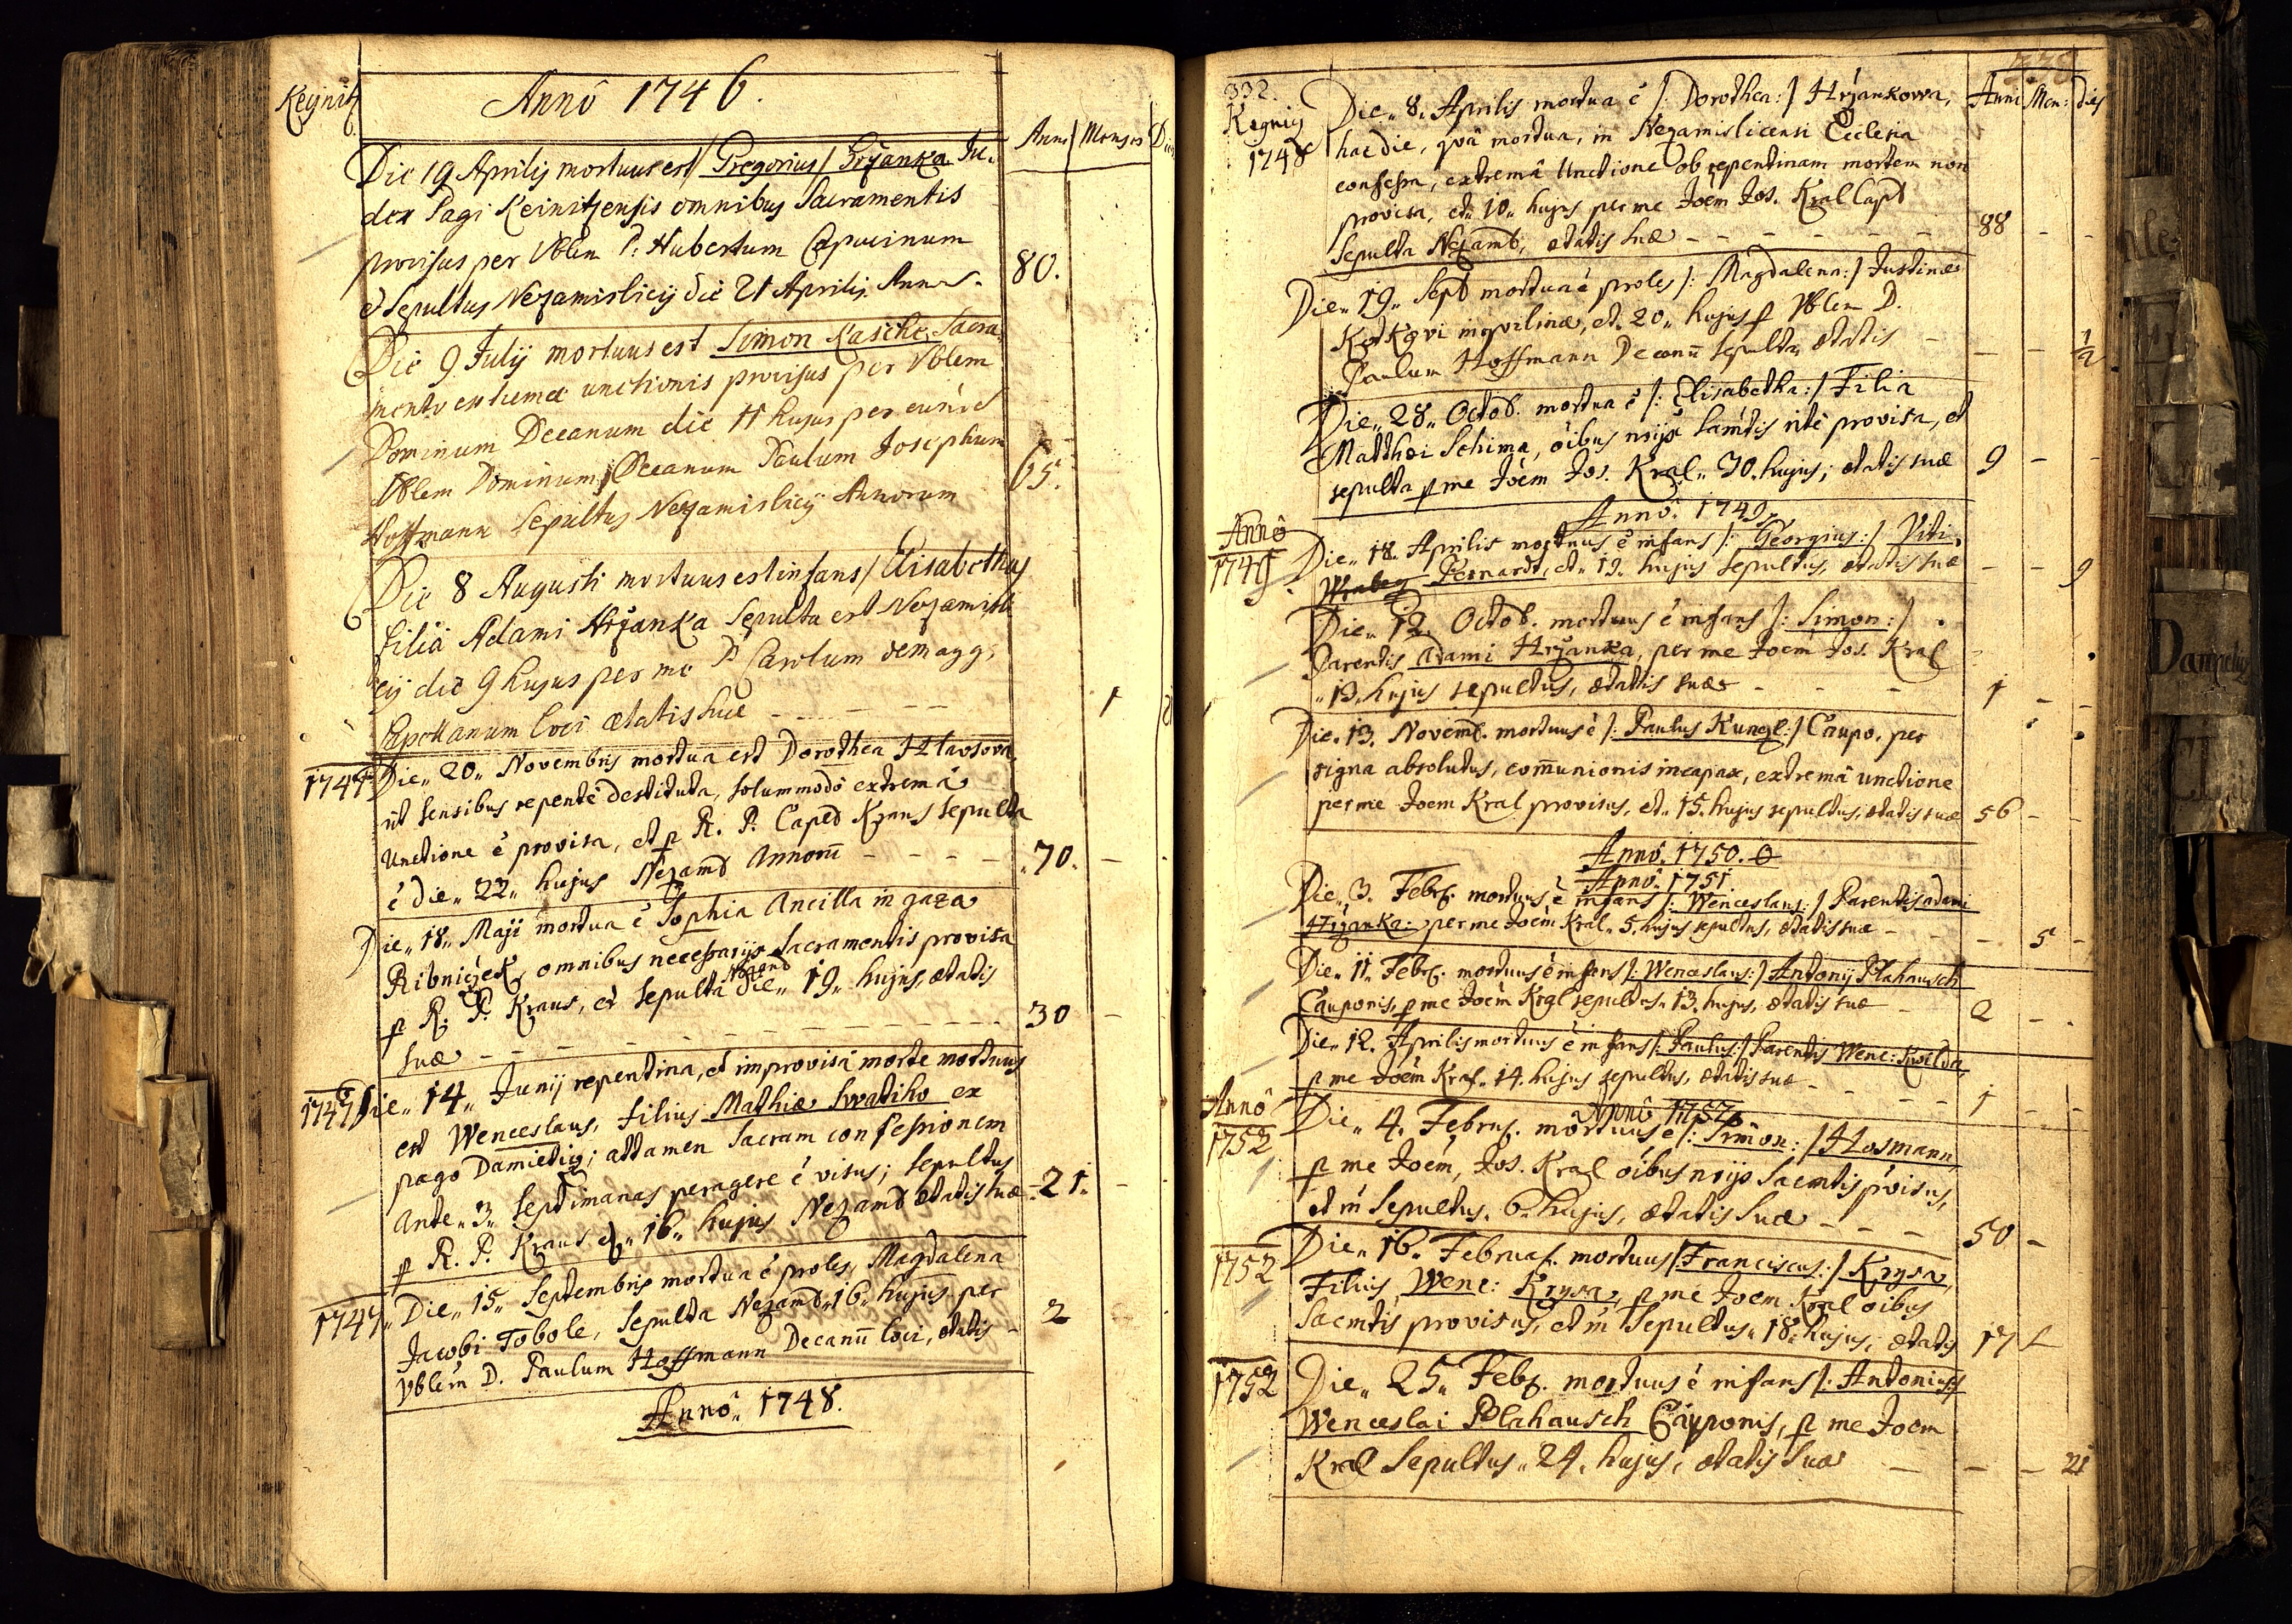 Keynitz
Annô 1746.
Anni Menses Dies
Die 19 Aprilis mortuus est / Gregorius / Hrzanka Ju-
dex Pagi Keinitzensis omnibus Sacramentis
provisus per Vblem P: Hubertum Capucinum
et Sepultus Nezamislicij die 21 Aprilis Anno. 80.
Die 9 Julij mortuus est Simon Kasche, Sacra-
mento extremæ unctionis provisus per Vblem
Dominum Decanum die 11 hujus per eundē
Vblem Dominum Decanum Paulum Josephum
Hoffmann Sepultus Nezamislicij Annorum 65.
Die 8 Augusti mortuus est infans / Elisabetha
filia Adami Hrzanka Sepulta est Nezamisli-
cij die 9 hujus per me P Carolum
Capellanum loci ætatis suæ 1
1747 Die „ 20 „ Novembris mortua est Dorothea Hlavsova
ut sensibus repentè destituta, solummodô extremâ
Unctione ē provisa, et p R. P. Capld Kraus Sepulta
ē die „ 22 „ hujus Nezamb Annorū - - - - 70.
Die „ 18 „ Maji mortua ē Sophia Ancilla in gaza
Ribniczek, omnibus necessarijs Sacramentis provisa
p R. P. Kraus, et sepulta Nezamb die „ 19 „ hujus, ætatis
suæ - - - - - 30
1747 Die „ 14 „ Junij repentina, et improvisâ morte mortuus
est Wenceslaus, filius Mathiæ Swatiho ex
pago Damietig; attamen Sacram confessionem
ante „ 3 „ septimanas peragere ē visus; sepultus
p R. P. Kraus d „ 16 „ hujus Nezamb ætatis suæ 21.
1747 „ Die „ 15 „ Septembris mortua ē proles, Magdalena
Jacobi Tobole, Sepulta Nezamb „ 16 „ hujus per
Vblem D. Paulum Hoffmann Decanū loci, ætatis - 2
Annô „ 1748.
332.
Kegnicij
1748
Anni Men: dies
Die „ 8. Aprilis mortua ē /: Dorothea: / Hrzankowa,
hac die, quâ mortua, in Nezamislicensi Ecclesia
confessa, extremâ Unctione ob repentinam mortem non
provisa, et „ 10 „ hujus per me Joēm Jos. Kral Capl
Sepulta Nezamb, ætatis suæ - - - - - 88 - -
Die „ 19 „ Sept mortua ē proles /: Magdalena: / Justinæ
inqvilinæ, et „ 20 „ hujus p Vblem D.
Paulum Hoffmann Decanū sepulta, ætatis - - - 1/2
Die „ 28 „ Octob. mortua ē /: Elisabetha: / Filia
Matthæi Schima, oībus nrijs Samtis ritè provisa, et
sepulta p me Joēm Jos. Kral „ 30. hujus; ætatis suæ 9 - -
Annô. 1749.
Annô
1749.
Die „ 18. Aprilis mortuus ē infans /: Georgius: / Viti
Wrabeg Bernardt, et „ 19. hujus sepultus, ætatis suæ - - 9
Die „ 12 Octob. mortuus ē infans /: Simon: /
Parentis Adami Hrzanka, per me Joēm Jos. Kral
„ 13. hujus sepultus, ætatis suæ - - - 1 - -
Die. 13. Novemb. mortuus ē /: Paulus Kungl: / Caupo, per
signa absolutus, com̄unionis incapax, extremâ unctione
per me Joem Kral provisus, et „ 15. hujus sepultus, ætatis suæ 56 - -
Annô. 1750. 0
Annô. 1751
Die „ 3. Febr. mortuus ē infans /: Wenceslaus: / Parentis adami
Hrzanka: per me Joēm Kral „ 5. hujus sepultus, ætatis suæ - - - 5 -
Die „ 11. Febr. mortuus ē infans /: Wenceslaus: / Antonij Plahausch
Cauponis, p me Joēm Kral sepultus „ 13. hujus, ætatis suæ - 2 - -
Die „ 12. Aprilis mortuus ē infans /: Paulus: / Parentis Wenc: Kwilda,
p me Joēm Kral „ 14. hujus sepultus, ætatis suæ - - - 1 - -
Annô 1752
Annô
1752
Die „ 4. Febru. mortuus ē /: Simon: / Hosmann,
p me Joēm, Jos. Kral oībus nrijs Sacmtis p̄visus,
et īn sepultus „ 6 „ hujus, ætatis Suæ - - - 50 -
1752
Die „ 16. Februar. mortuus /: Franciscus: / Krysa,
Filius, Wenc: Krysa, p me Joem Kral oībus
Sacmtis provisus, et īn sepultus „ 18. hujus, ætatis 17
1752
Die „ 25 „ Febr. mortuus ē infans /: Antonius:/
Wenceslai Plahausch Cauponis, p me Joem
Kral Sepultus „ 24. hujus, ætatis suæ - - - 21